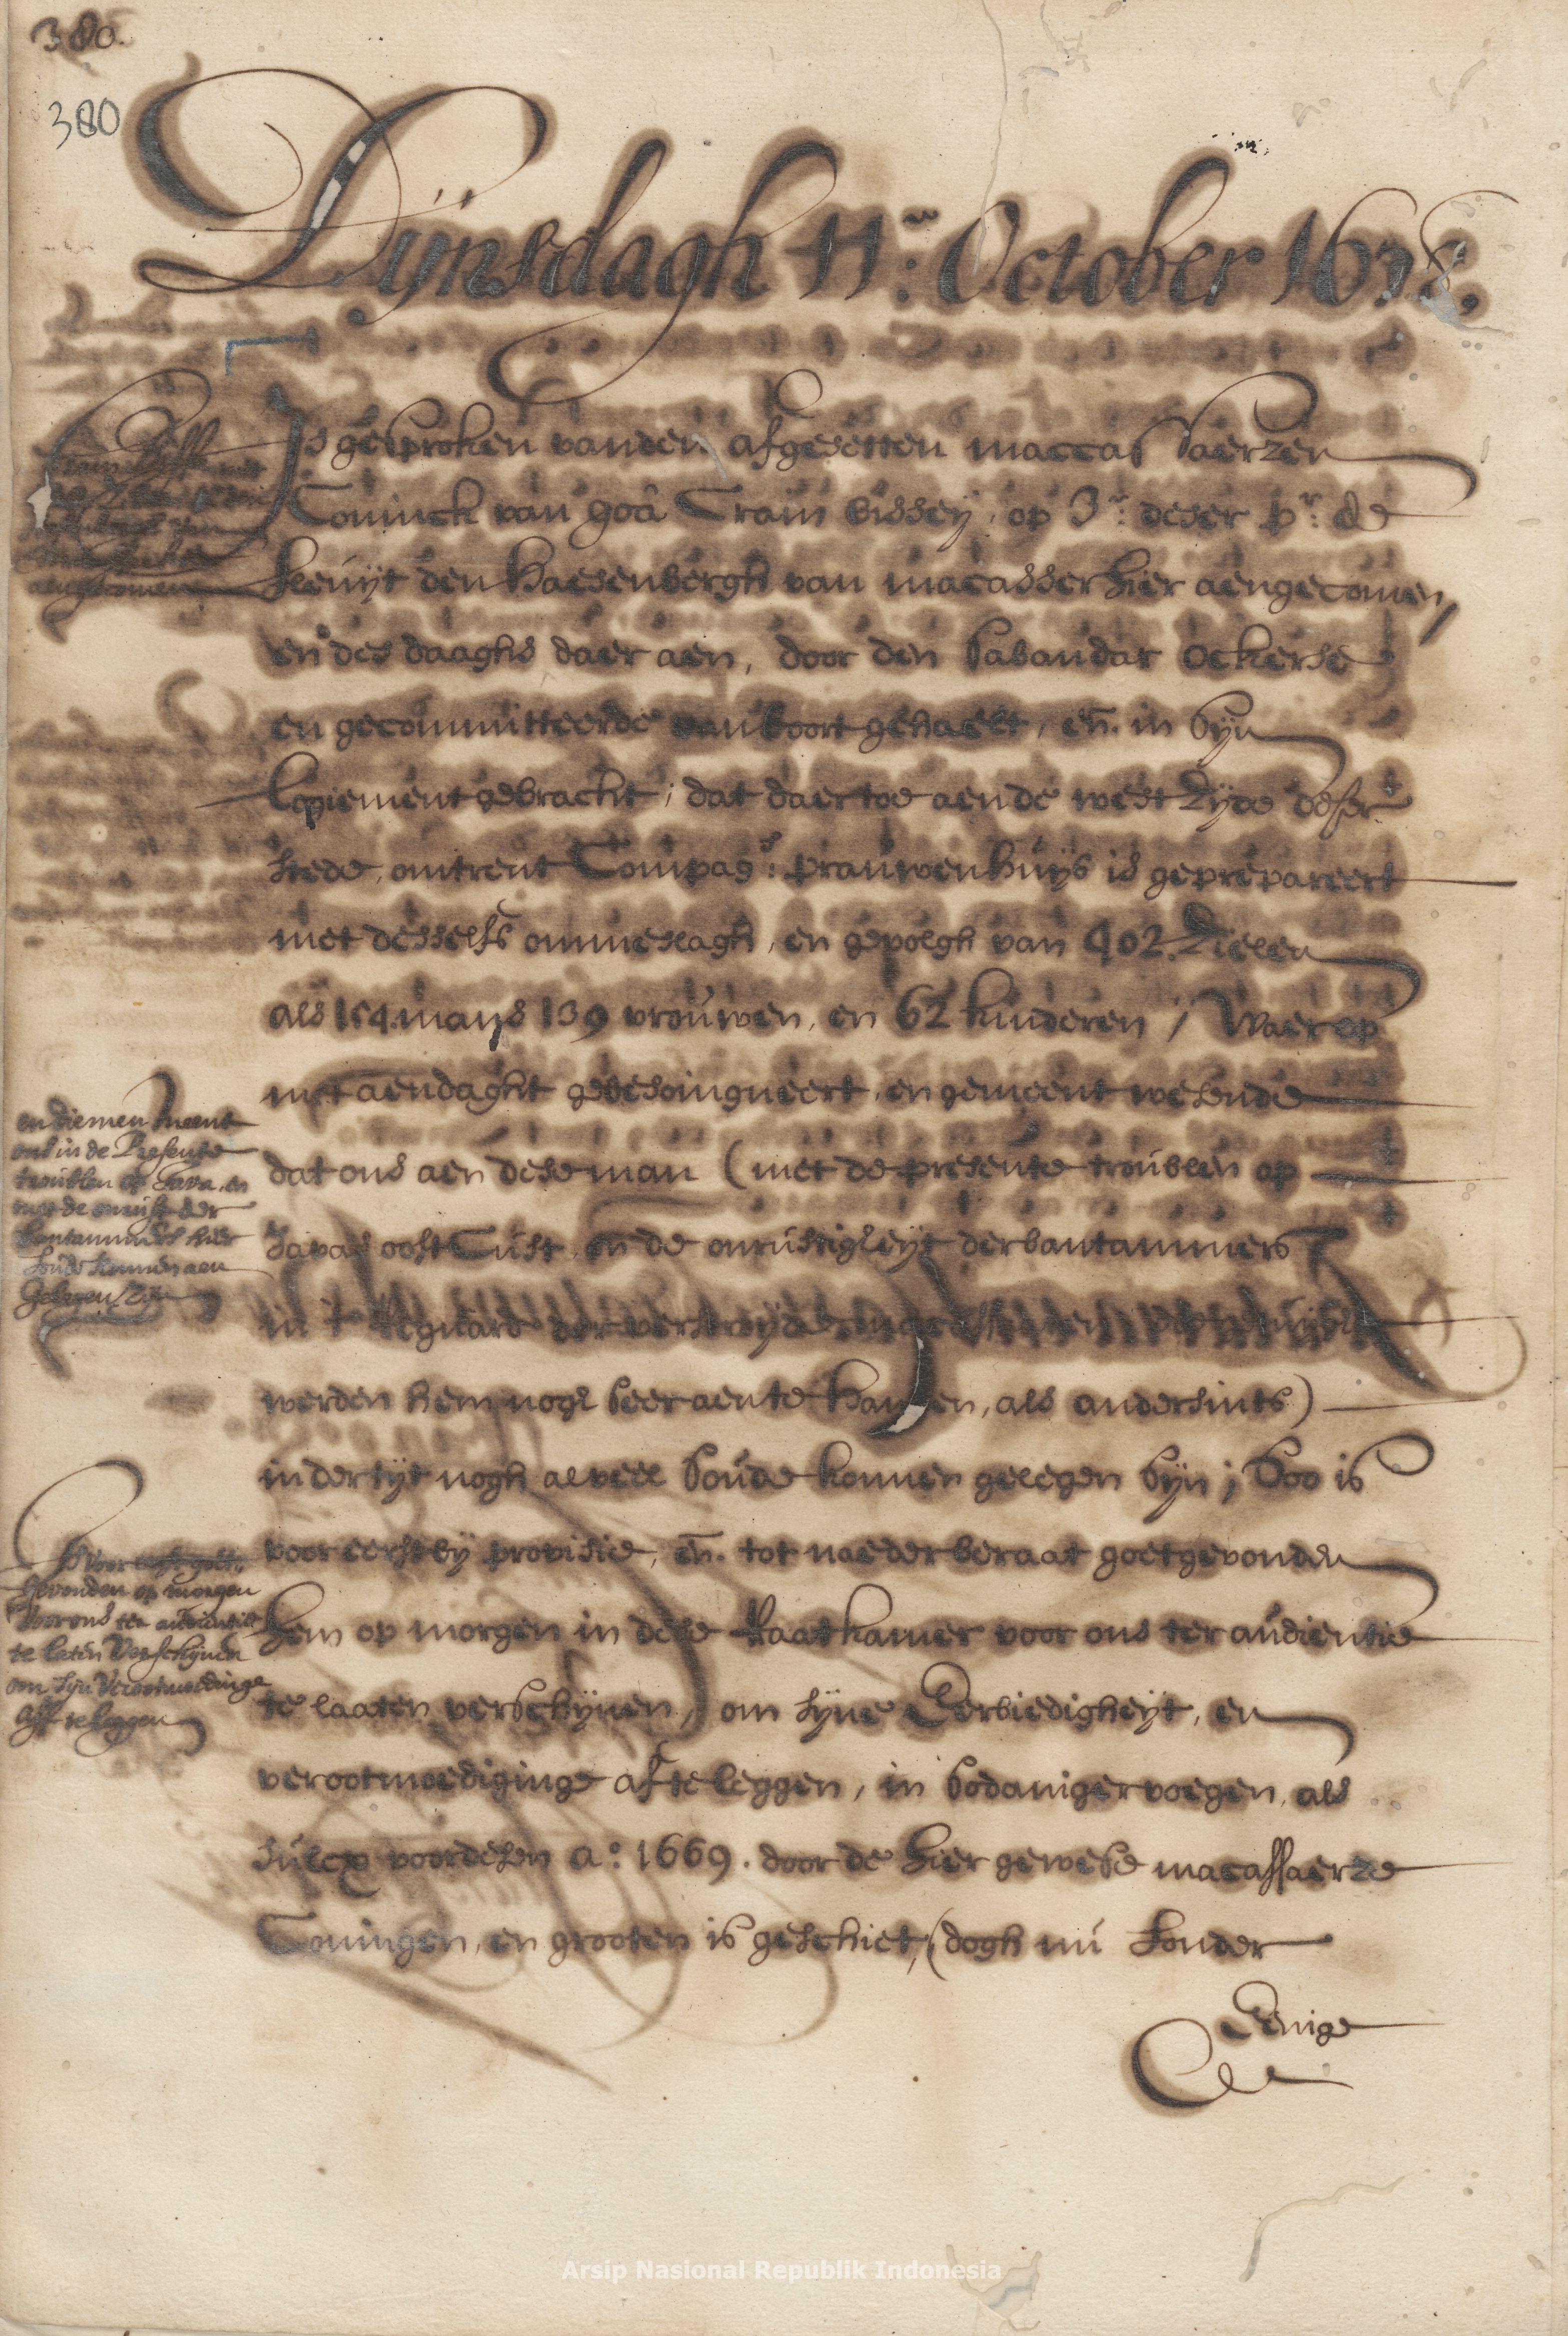 380.
380
Dijnsdagh 11.en October 1678.
Is gesproken vanden afgesetten maccassaerzen
Coninck van goâ Crain bissey, op 3.n deser p.r de
fleuijt den Haesenbergh van macasser hier aengecomen,
en des daaghs daer aen, door den Sabandar Ockerse
en gecommitteerde van boort gehaelt, en. in sijn
logiement gebracht; dat daer toe aende west zijde deser
stede, omtrent Compag.s prauwenhuijs is geprepareert
met desselfs ommeslagh, en gevolgh van 402. zielen
als 154 mans 139 vrouwen, en 62 kinderen / Waer op
met aendaght gebesoingneert, en gemeent wesende
dat ons aen dese man (met de presente troublen op
Javas oost Cust, en de onrustigheijt der bantammers
in 't reguard der verstroijde
werden hem nogh seer aente hangen, als andersints)
inder tijt nogh al veel soude konnen gelegen sijn; Soo is
voor eerst bij provisie, en. tot naeder beraat goetgevonden
hem op morgen in dese Raatkamer voor ons ter audientie
te laaten verschijnen, om sijne Eerbiedigheijt, en
verootmoediginge af te leggen, in sodaniger voegen, als
sulcx voordesen a.o 1669. door de hier gewese macassaerze
Coningen, en grooten is geschiet, (dogh nu sonder
Eenige
aengecomen
en diemen meent
ons in de Presente
troublen op Java, en
met de onrust der
bantammers hier
soude kunnen aen
gelegen zijn
gevonden op morgen
voor ons ter audientie
te laten Verschijnen
om sijn Verootmoedinge
aff te leggen
Arsip Nasional Republik Indonesia